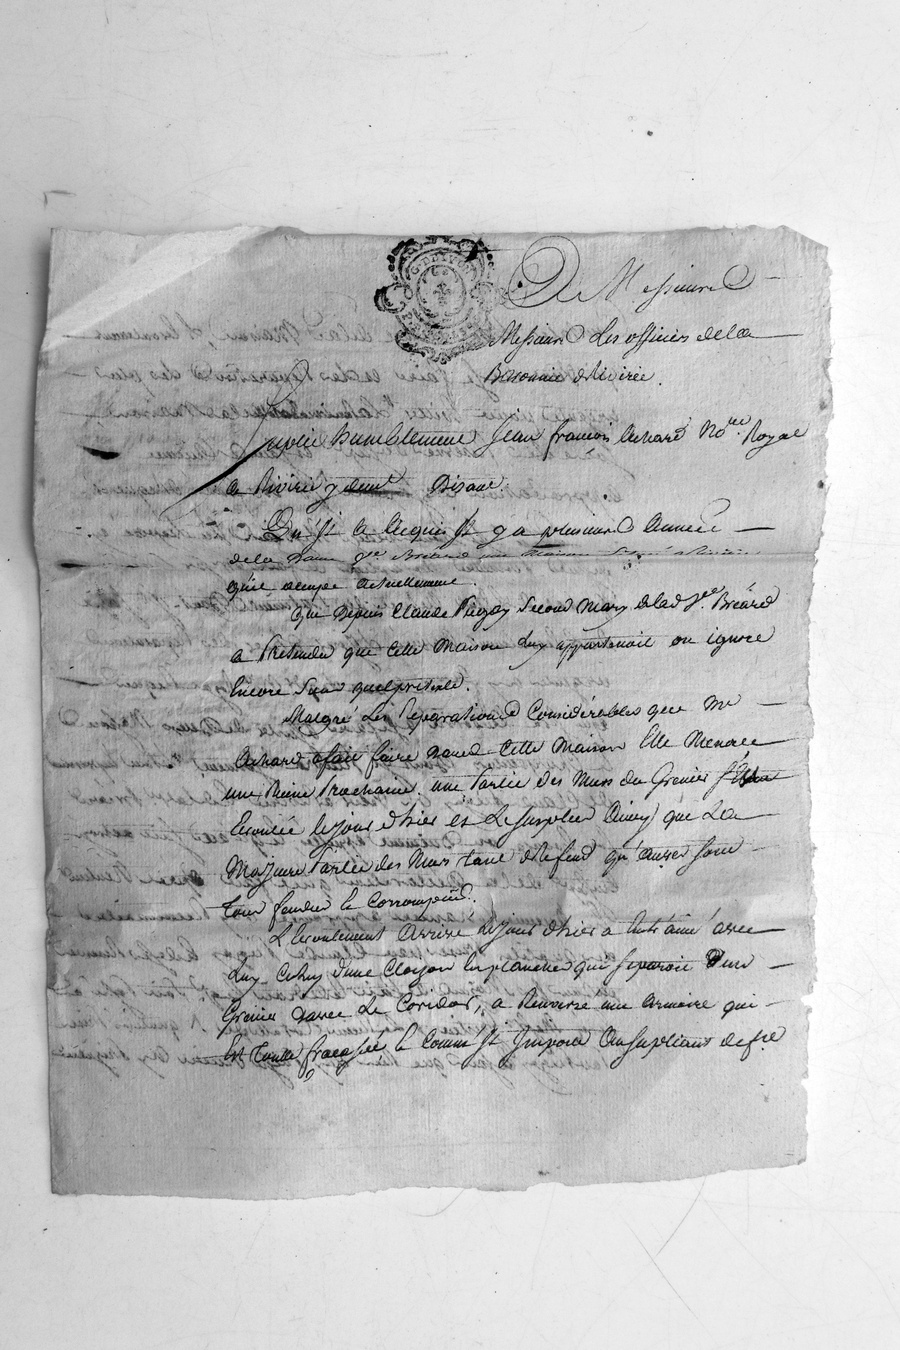 A Messieurs
Messieurs Les officiers dela
Baronnie de Rivirie.
Suplie humblement Jean francois Achard No.re Royal
a Rivirie y demt Disant
Qu'il a acquis il y a plusieurs années
dela
qu'il occupe actuellement.
que Depuis Claude second mary de lad. Bréard
a Pretendu que cette Maison luy appartenoit on ignore
Encore sur quel pretexte.
Malgré Les Reparations Considérables que me
Achard a fait faire dans cette Maison Elle Menace
une Ruine Prochaine, une Partie des Murs du Grenier
Ecroulée le jour d'hier et Le surplus Ainsy que La
Majeure Partie des Murs tant de Refend qu'autres sont
tous fendus et Corrompus.
L'Ecroulement Arrivé le jour d'hier a Entrainé avec
Luy Celuy d'une Cloison en planches qui separoit deux
Greniers avec Le Coridor, a Renversé une armoire qui
Est Toute fracassée et Comme il Importe Au supliant de fe